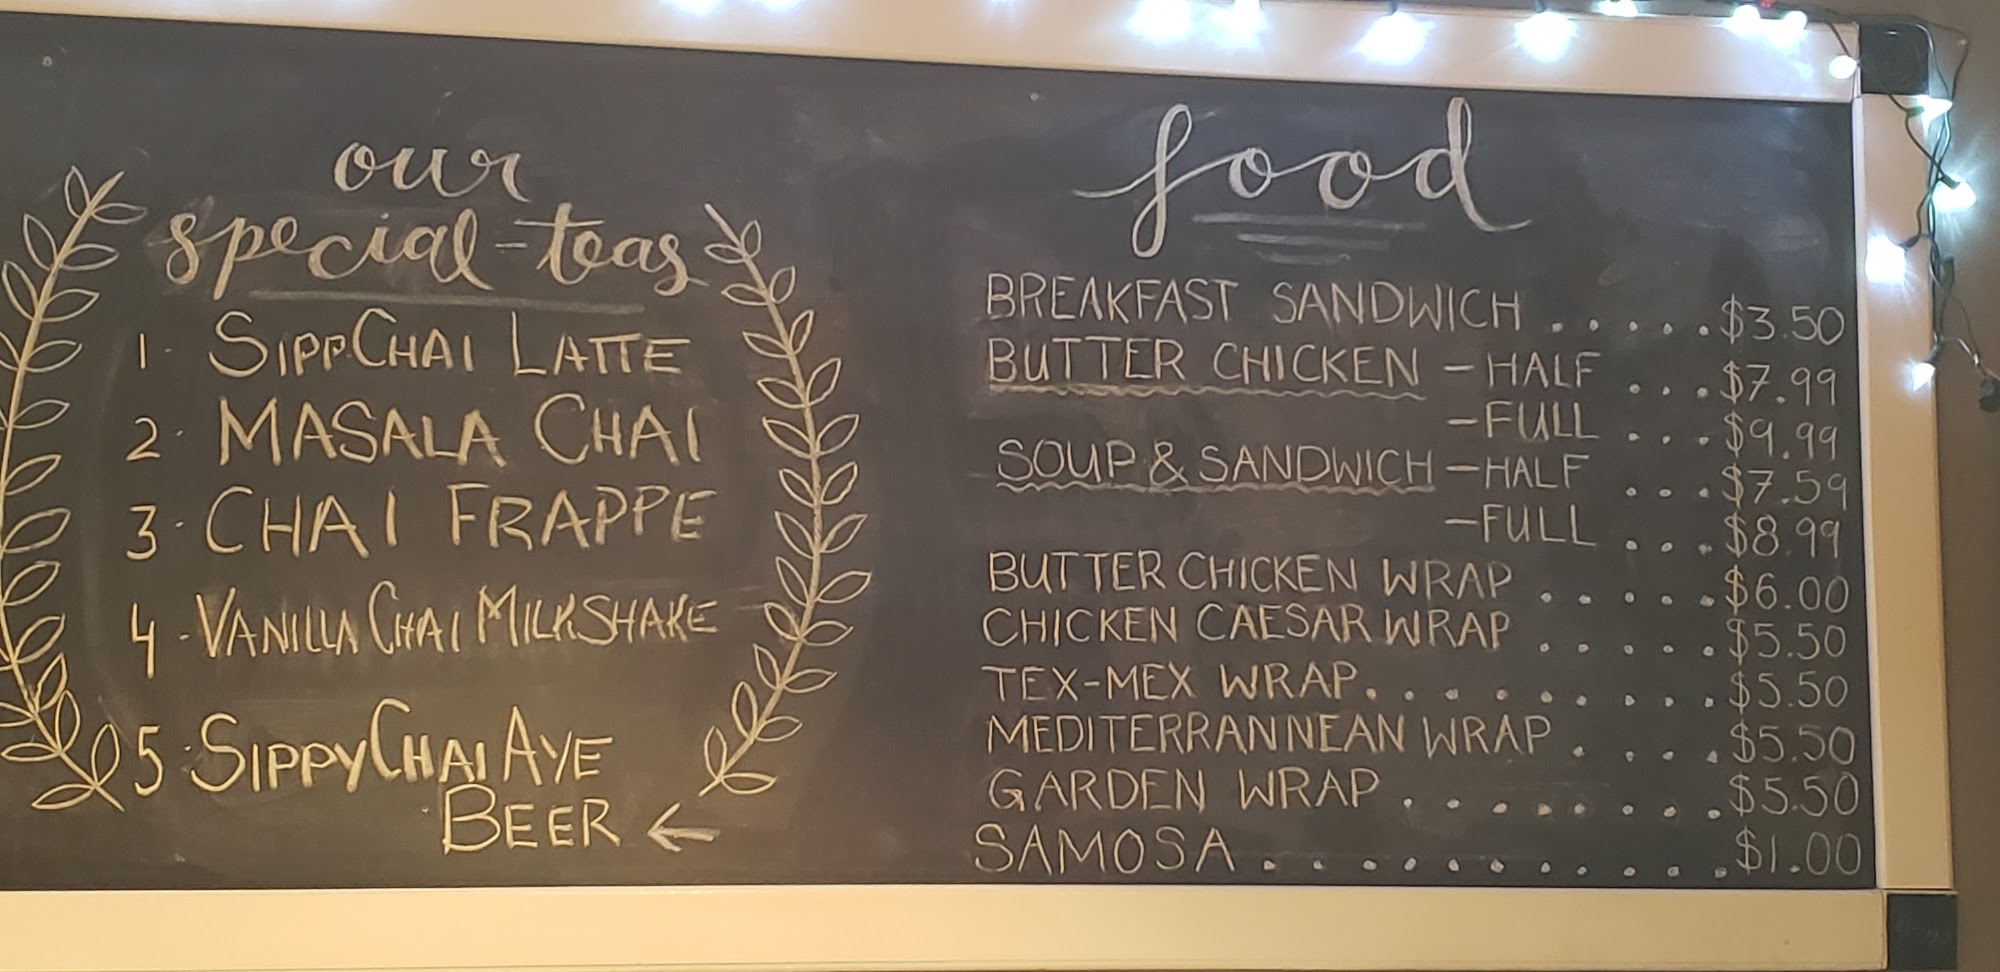 our
special-teas
1- SIPPCHAI LATTE
2. MASALA CHAI
3. CHAI FRAPPE
4-VANILLA CHAI MILKSHAKE
5. SIPPYCHAI AYE
BEER ←
food
BREAKFAST SANDWICH . . . . . $3.50
BUTTER CHICKEN -HALF . . . $7.99
-FULL . . . $9.99
SOUP & SANDWICH -HALF . . . $7.59
-FULL . . . $8.99
BUTTER CHICKEN WRAP . . . . . $6.00
CHICKEN CAESAR WRAP . . . . . $5.50
TEX-MEX WRAP. . . . . . . . . $5.50
MEDITERRANNEAN WRAP . . . . $5.50
GARDEN WRAP . . . . . . . . $5.50
SAMOSA . . . . . . . . . . . $1.00